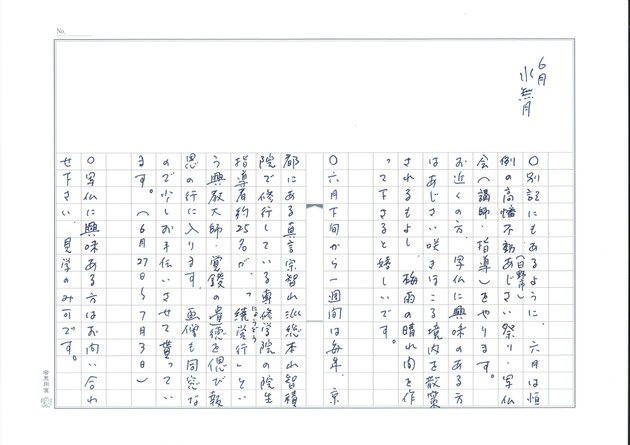 No.
6月
水無月
〇別記にもあるように、六月は恒
例の高幡不動(日野市)あじさい祭り・写仏
会(講師・指導)をやります。
お近くの方、写仏に興味のある方
はあじさい咲きほこる境内を散策
されるもよし、梅雨の晴れ間を作
って下さると嬉しいです。
〇六月下旬から一週間は毎年、京
都にある真言宗智山派総本山智積
院で修行している専修学院の院生
指導者約25名が、「繞堂行」とい
にょうどう
う興教大師・覚鑁の遺徳を偲び報
恩の行に入ります。画僧も同窓な
ので少しお手伝いさせて貰ってい
ます。(6月27日〜7月3日)
〇写仏に興味ある方はお問い合わ
せ下さい。見学のみ可です。